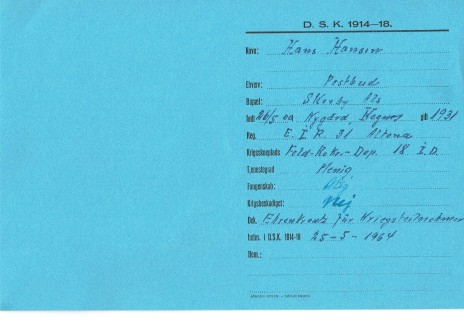 D. S. K. 1914—18.
Navn: Hans Hansen
Erhverv: Postbud
Bopæl: Skovby Als
født 26/5 00 Nygård, Kegnæs gift 1931
Reg. E. I. R. 31 Altona
Krigsskueplads Feld-Rekr.-Dep. 18. I. D.
Tjenestegrad Menig
Fangenskab: Nej
Krigsbeskadiget: Nej
Dek. Ehrenkreuz für Kriegsteilnehmer
Indm. i D.S.K. 1914-18 25-5-1964
Bem.: